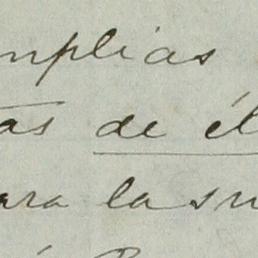 mplias
tas de él
ara la su